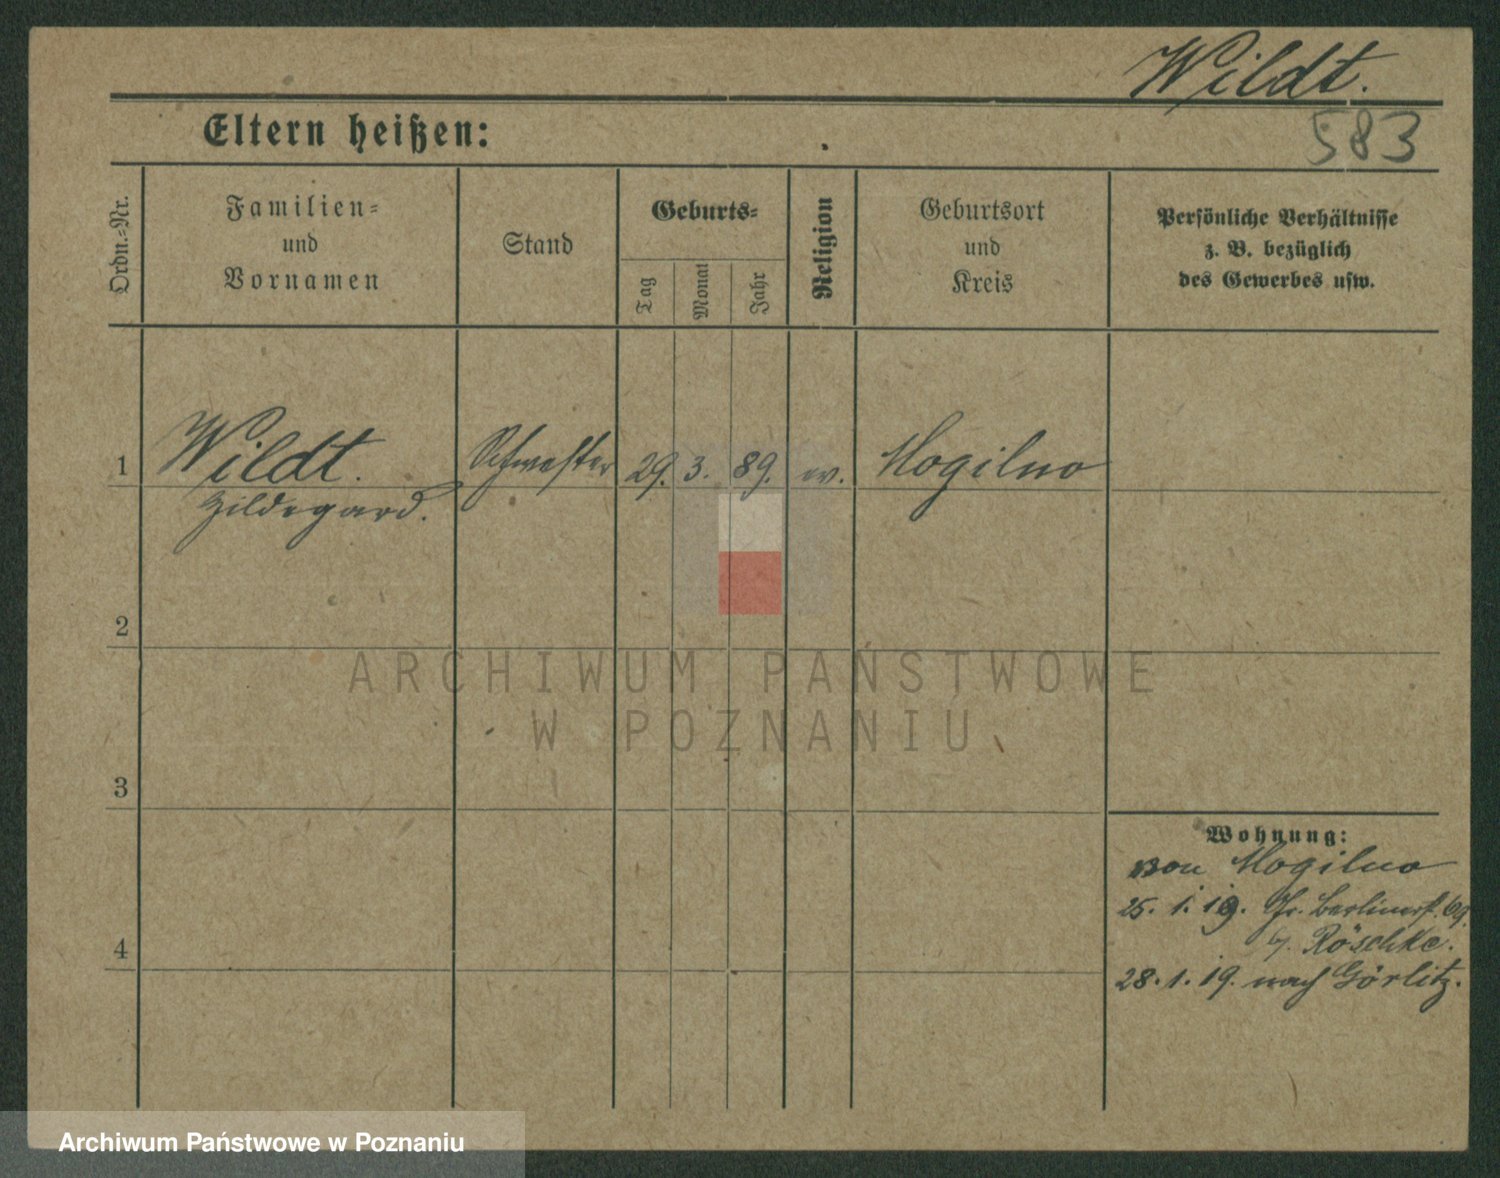 Wildt.
Eltern heißen:
583
Ordn.-Nr.
Familien-
und
Vornamen
Stand
Geburts-
Tag
Monat
Jahr
Religion
Geburtsort
und
Kreis
Persönliche Verhältnisse
z. B. bezüglich
des Gewerbes usw.
1 Wildt. Schwester 29. 3. 89. ev. Mogilno
Hildegard.
2
ARCHIWUM PAŃSTWOWE
W POZNANIU
3
Wohnung:
von Mogilno
25. 1. 19. Gr. Berlinerst. 69.
b. Röschke.
4
28. 1. 19. nach Görlitz.
Archiwum Państwowe w Poznaniu